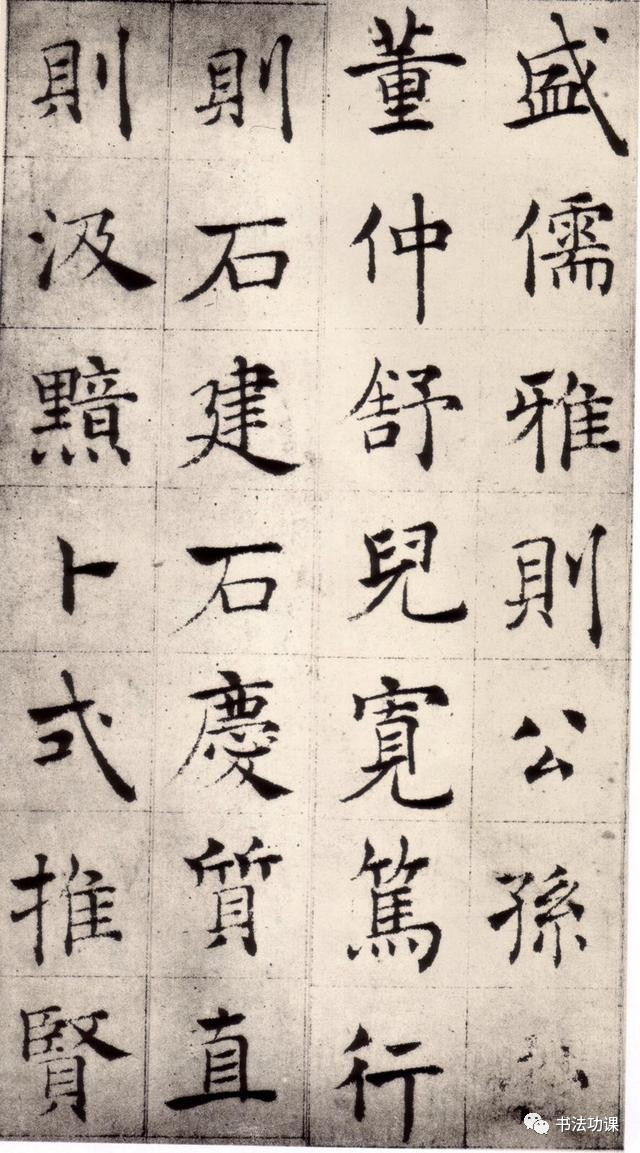 盛儒雅則公孫
董仲舒兒寬篤行
則石建石慶質直
則汲黯卜式推賢
书法功课